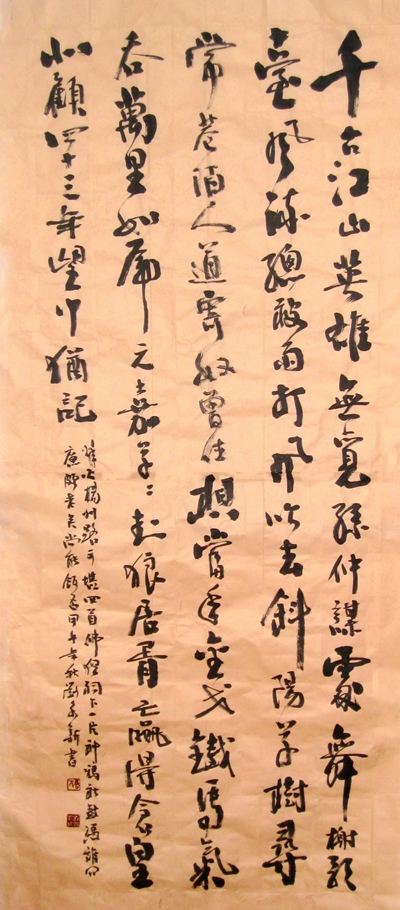 千古江山英雄無覓孫仲謀處舞榭歌
臺風流總被雨打風吹去斜陽草樹尋
常巷陌人道寄奴曾住想當年金戈鐵馬氣
吞萬里如虎元嘉草〻封狼居胥贏得倉皇
北顧四十三年望中猶記
烽火揚州路可堪回首佛狸祠下一片神鴉社鼓馮誰問
廉頗老矣尚能飯否甲午年秋劉新書